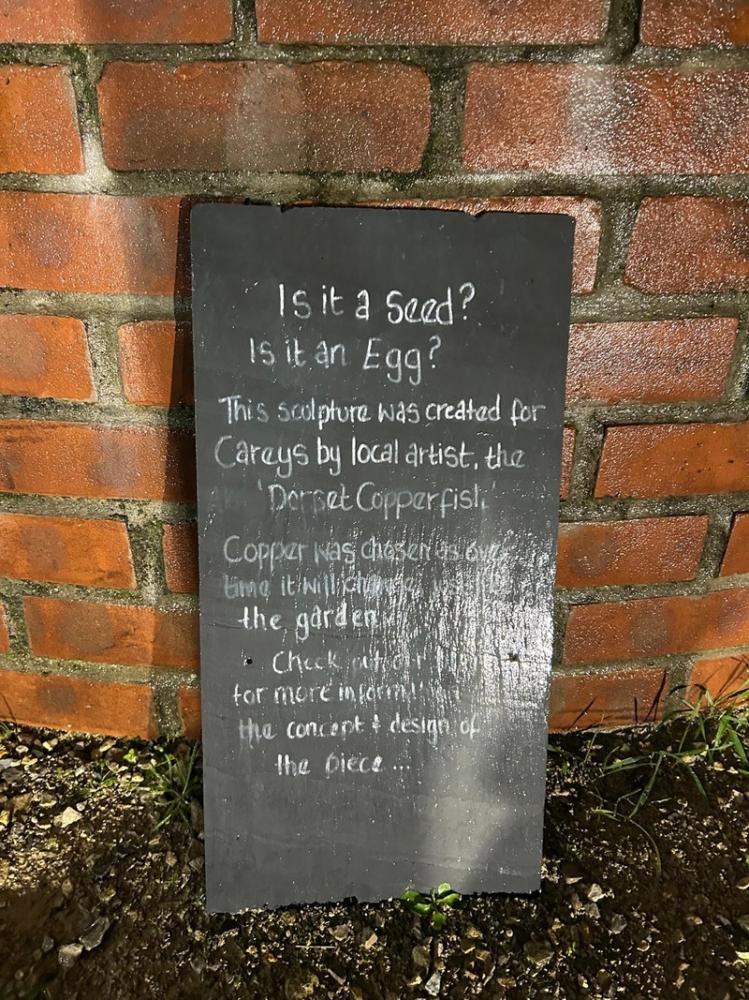 Is it a Seed?
Is it an Egg?
This sculpture was created for
Careys by local artist, the
'Dorset Copperfish'
Copper was chosen as over
time it will change
the garden
Check out our
for more
the concept & design of
the piece ...